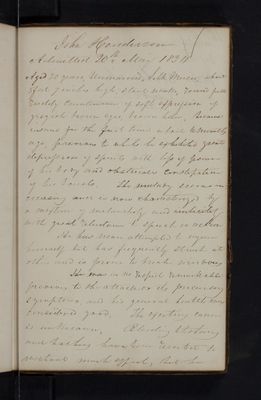 John Henderson
Admitted 20th May 18
Aged 30 years, Unmarried, Silk
5 feet inches high, stout make, round full
ruddy countenance of soft expression of
greyish brown eyes, brown hair, became
insane for the first time about months
ago, previous to which he exhibited great
depression of spirits with loss of power
of his body and obstinate constipation
of his bowels. The malady
creasing and is now characterized by
a mixture of melancholy and
with great reluctance to speak or action.
He has never attempted to injure
himself but has frequently struck at
others and is prone to break windows.
He was in no respect remarkable
previous to the attack or its precursory
symptoms and his general health was
considered good. The exciting cause
is unknown. Bleeding blistering
and bathing have been resorted to
without much effect,